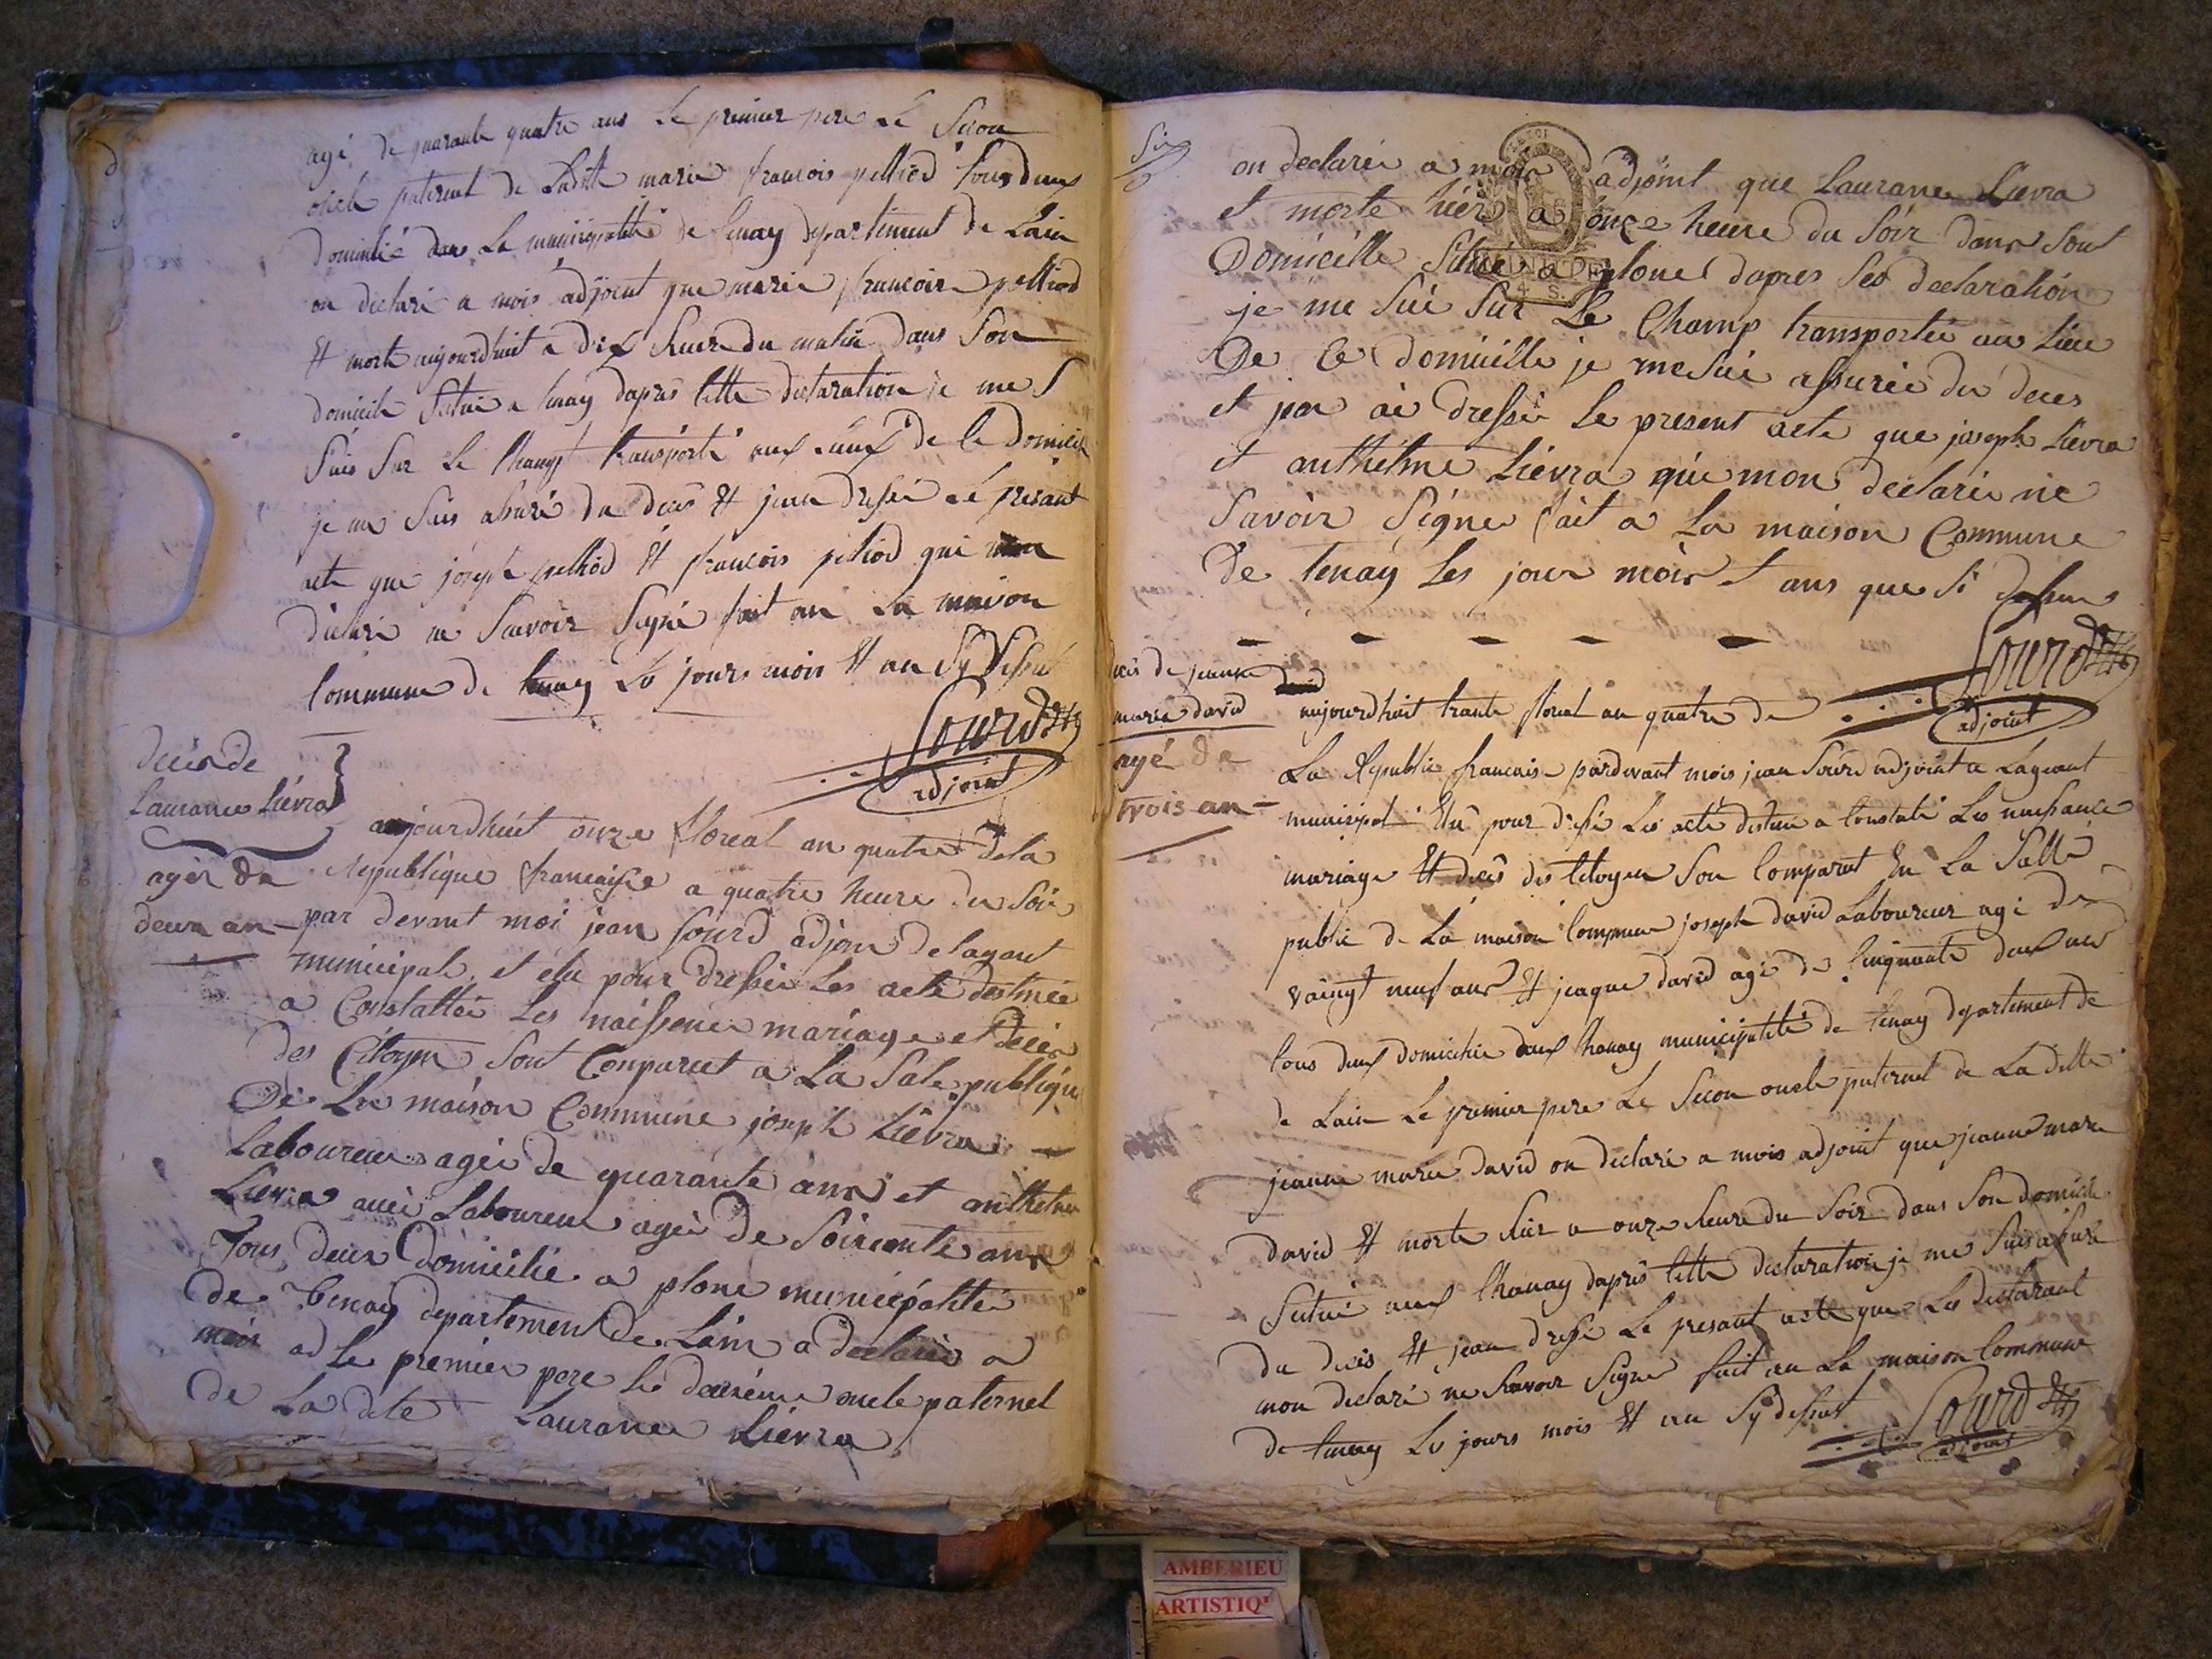 agé de quarante quatre ans Le premier pere Le Segon
oncle paternel de Laditte marie francois pelliod tous deux
domicilié dans La municipalité de tenay departement de Lain
on declaré a mois adjoint que marie francoise pelliod
Et morte aujourdhuit a dix heure du matin dans Son
domicile Situé a tenay dapres cette declaration je me S
Suis Sur Le champ transporté aux Lieux de ce domicile
je me Suis assuré du deces Et jean dressé Le presant
acte que joseph pelliod Et francois peliod qui mon
declaré ne Savoir Signé fait an La maison
commune de tenay Le jours mois Et an Sy Dessut
Sourd
adjoint
deces de
Laurance Liévra
agér de
deux an
aujourdhuit onze floreal an quatre dela
Republique francaise a quatre heure du Soir
par devant moi jean Sourd adjoin delagant
municipale et elu pour dresser Les acte destinée
a Constatter Les naissence mariage et deces
des Citoyen Sont Conparut a La Sale publique
De La maison Commune joseph Liévra
Laboureur agée de quarante ans et anthelme
Lievra aucé Laboureur agée de Soixante ans
Tous deux Domicilié a plone municipalitée
de Tenay departement de Lain a declarée a
moir ad Le premier pere Le deuxieme oncle paternel
de La dite Laurance Liévra
Six
on declarée a moir adjoint que Laurance Lievra
et morte hier a onze heure du Soir dans Sont
Domicille Situé a plone dapres Ses declaration
je me Sui Sur Le Champ transportée au Lieu
De Ce domicille je me Sui assurée du deces
et jen ai dressé Le present acte que joseph Lievra
et anthelme Lievra qui mon declarée ne
Savoir Signer fait a La maison Commune
De tenay Les jour moir et ans que Si dessus
Sourd
adjoint
deces de jeanne
marie david
agé de
trois an
aujourdhuit trante floreal an quatre de
La Republic francaise pardevant mois jean Sourd adjoint a Lageant
municipal Elu pour dressé Les acte destiné a Constaté Les naissance
mariage Et deces des Citoyen Son Comparut En La Salle
public de La maison Commune joseph david Laboureur agé de
vaingt neuf ans Et jeaque david agé de Cinquante deux ans
tous deux domicilié aux Chanay municipalité de tenay departement de
de Lain Le premier pere Le Segon oncle paternel de La ditte
jeanne marie david on declaré a mois adjoint que jeanne marie
david Et morte hier a onze heure du Soir dans Son domicile
Situé aux Chanay dapres cette declaration je me Suis assuré
du deces Et jean dressé Le presant acte que Les declarant
mon declaré ne Savoir Signer fait an La maison Commune
de tenay Le jours mois Et an Sy dessut
Sourd
adjoint
AMBERIEU
ARTISTIQ